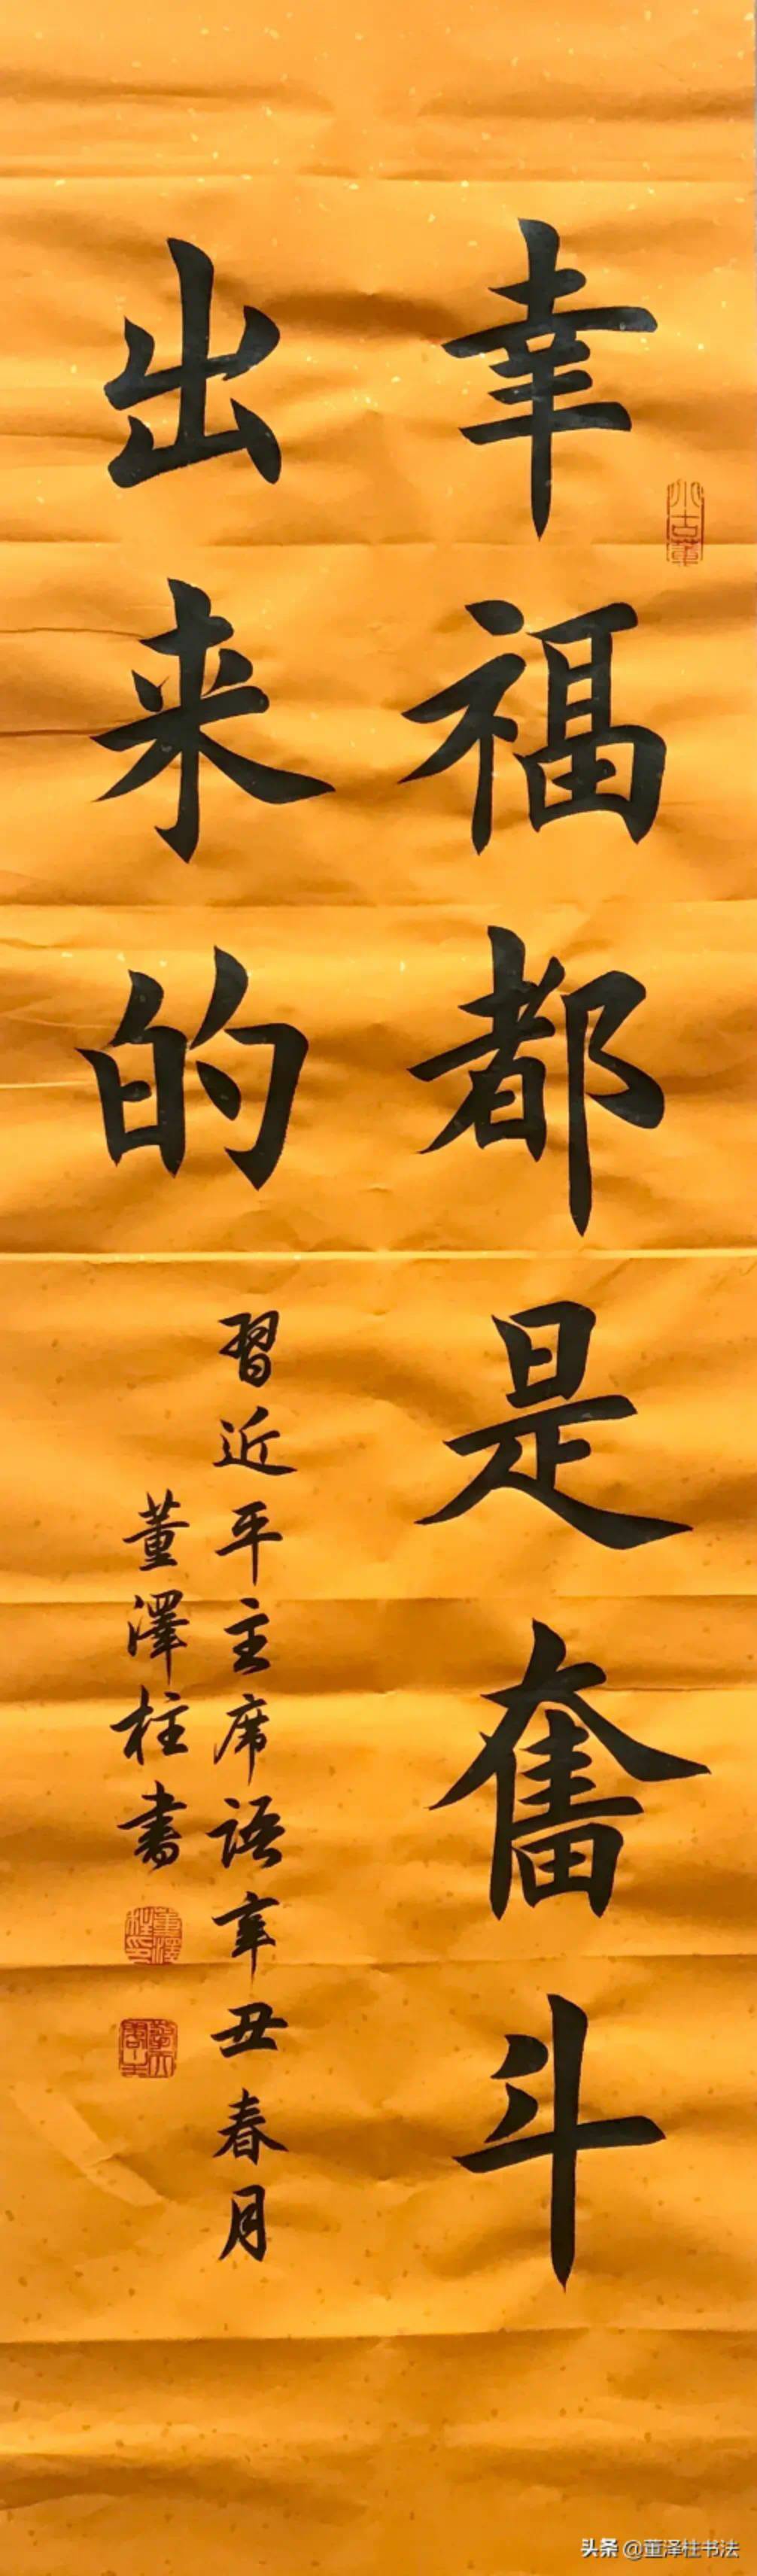 幸福都是奮斗
出来的
習近平主席語辛丑春月
董澤柱書
头条 @董泽柱书法